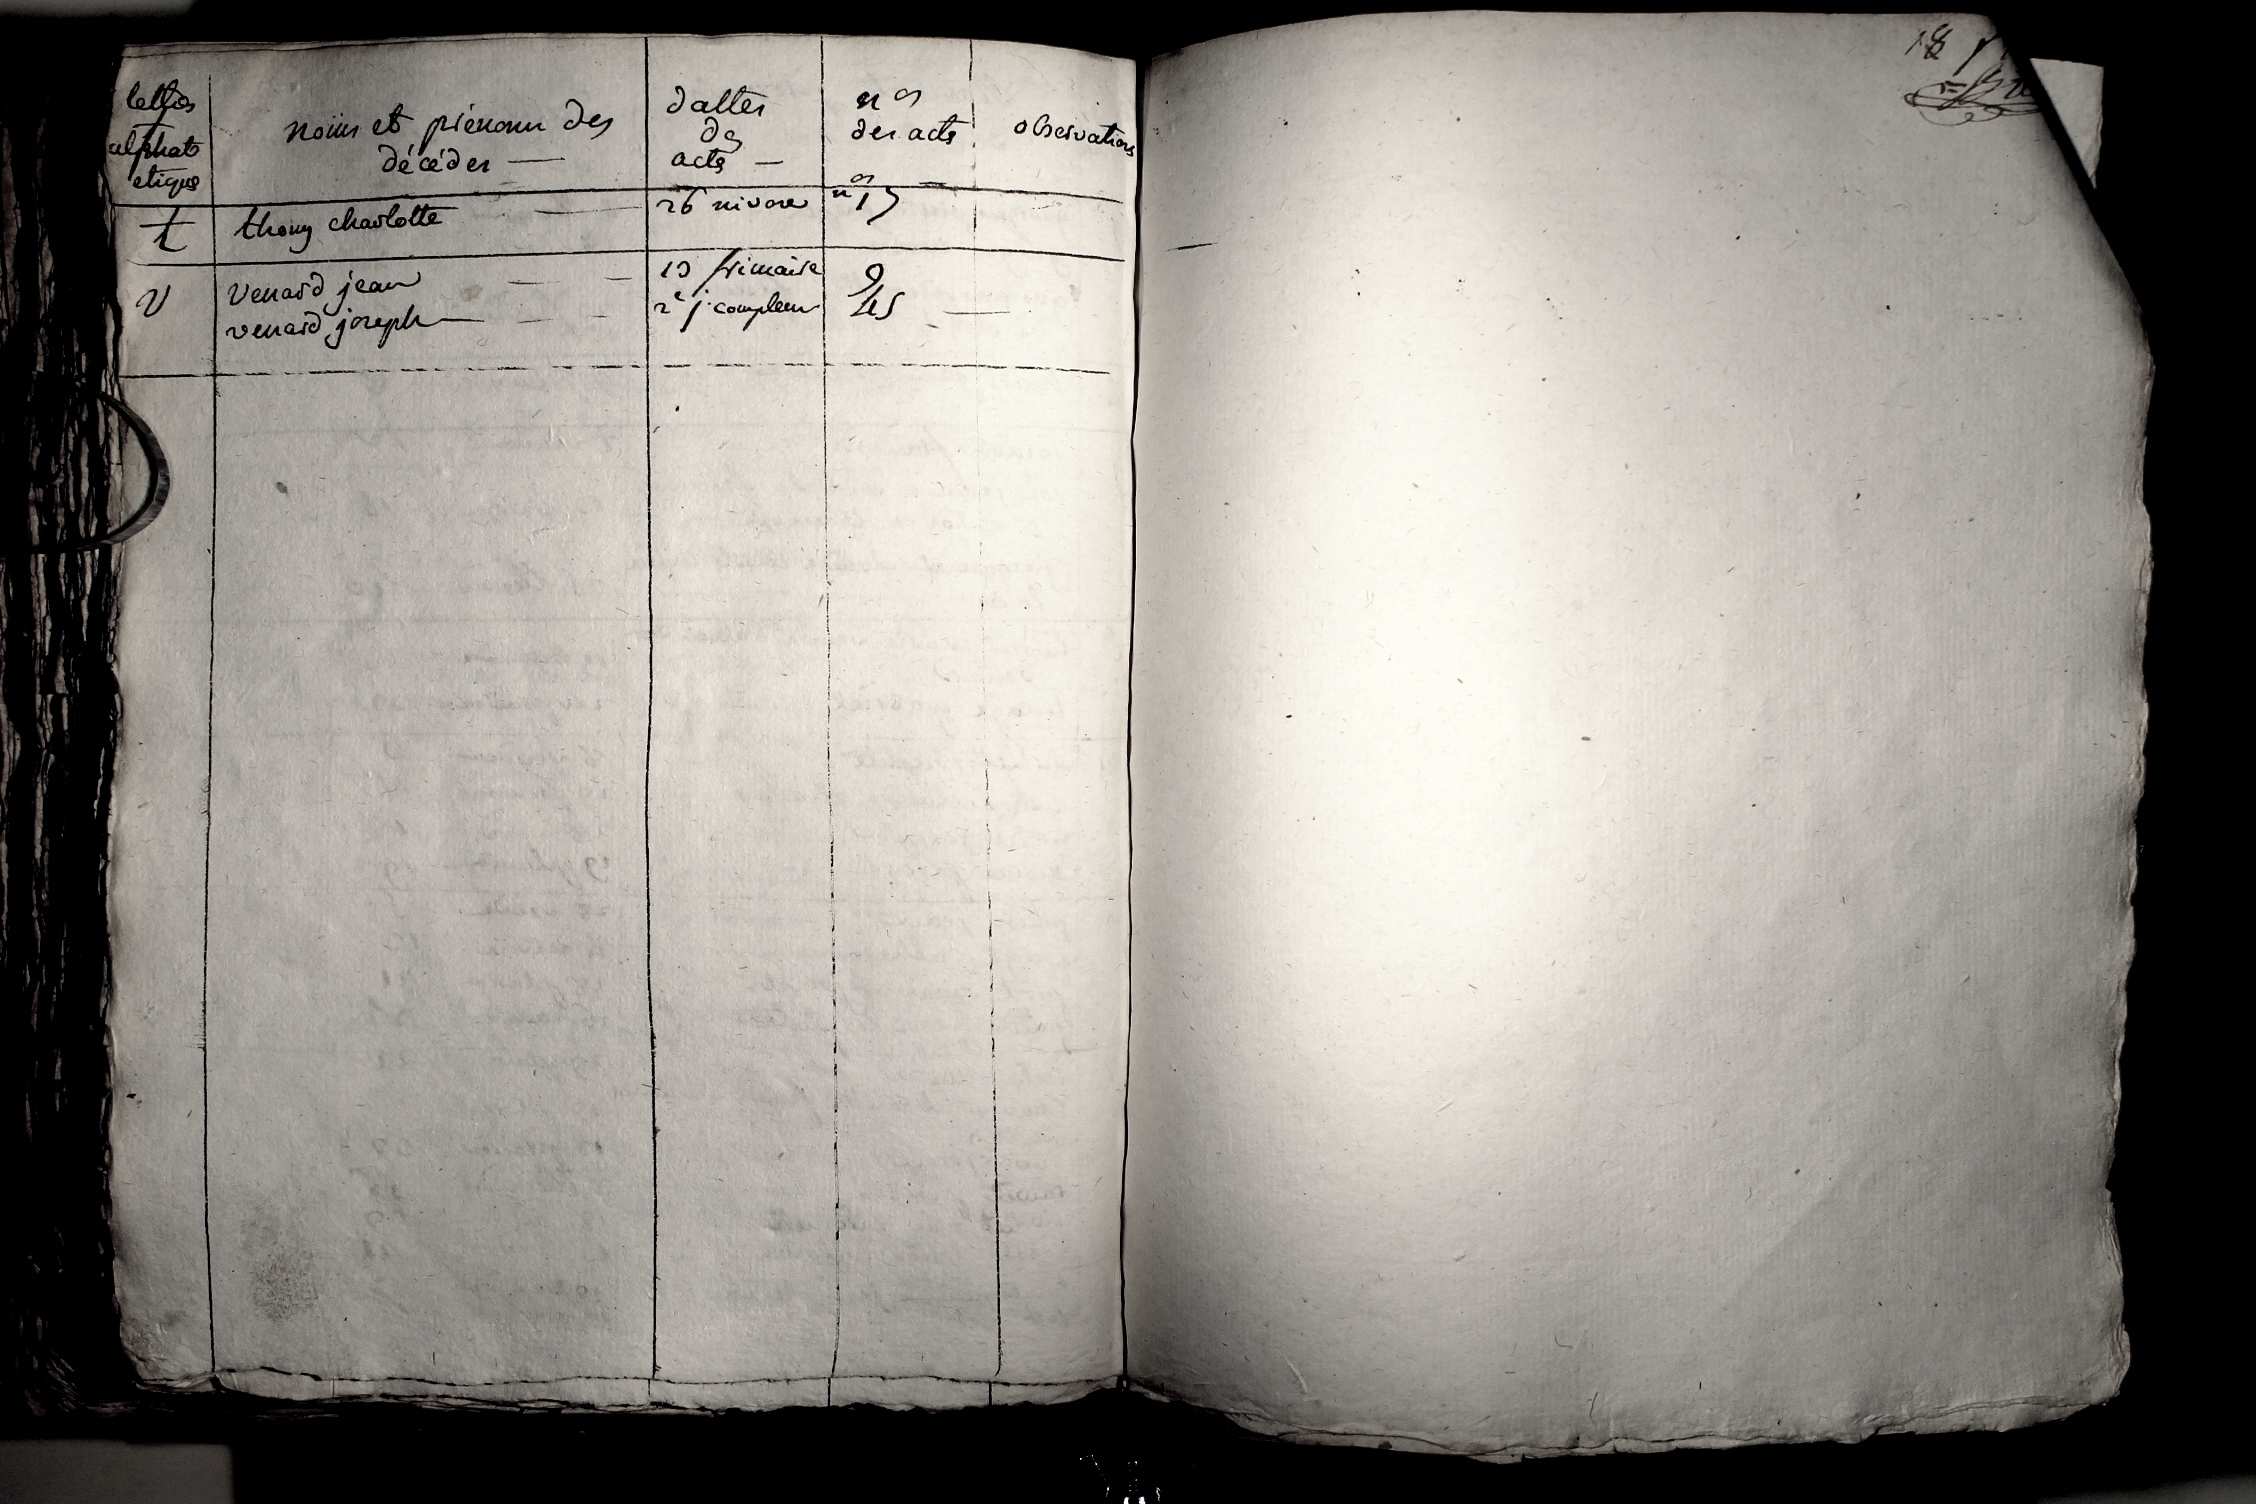 lettres
alphab
etique
noms et prénoms des
décédés —
dattes
des
actes —
nos
des actes
observations
t
thouy charlotte
26 nivose
nos 17
v
venard jean
13 frimaire
9
venard joseph
2e j. complem
45
18